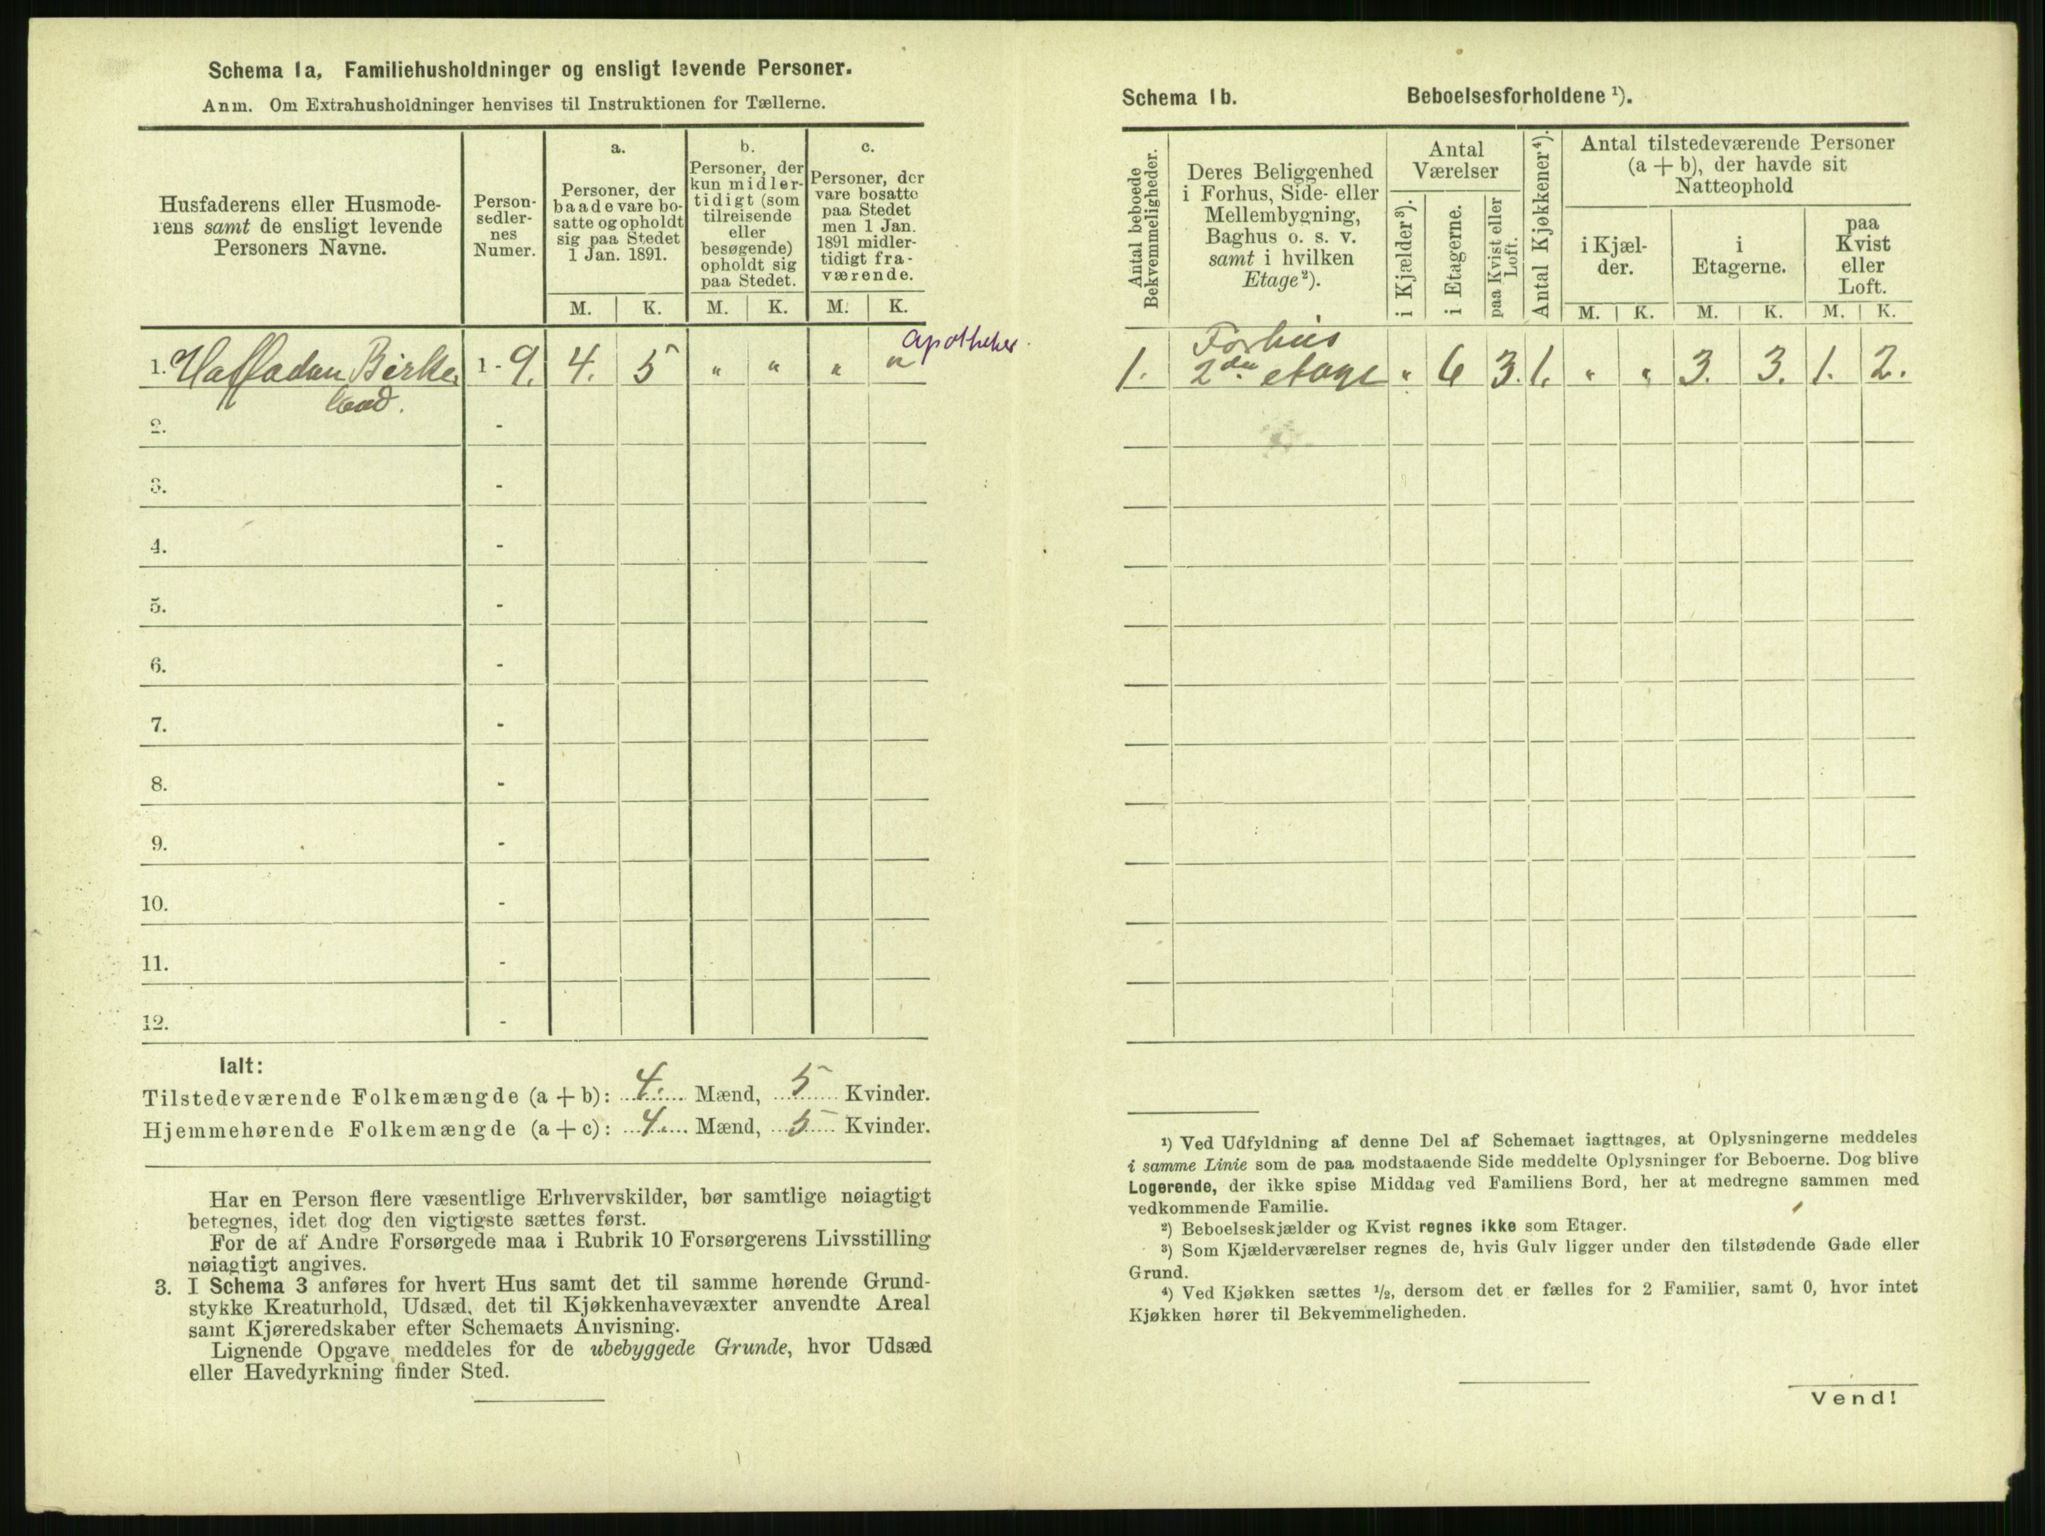 Schema 1a, Familiehusholdninger og ensligt levende Personer.
Anm. Om Extrahusholdninger henvises til Instruktionen for Tællerne.
Husfaderens eller Husmode-
rens samt de ensligt levende
Personers Navne.
Person-
sedler-
nes
Numer.
a.
Personer, der
baade vare bo-
satte og opholdt
sig paa Stedet
1 Jan. 1891.
b.
Personer, der
kun midler-
tidigt (som
tilreisende
eller
besøgende)
opholdt sig
paa Stedet.
c.
Personer, der
vare bosatte
paa Stedet
men 1 Jan.
1891 midler-
tidigt fra-
værende.
M. K. M. K. M. K.
apotheker.
1. Halfadan Birke 1 - 9. 4. 5 " " " "
land.
2. -
3. -
4. -
5. -
6. -
7. -
8. -
9. -
10. -
11. -
12. -
Ialt:
Tilstedeværende Folkemængde (a + b): 4. Mænd, 5 Kvinder.
Hjemmehørende Folkemængde (a + c): 4. Mænd, 5 Kvinder.
Har en Person flere væsentlige Erhvervskilder, bør samtlige nøiagtigt
betegnes, idet dog den vigtigste sættes først.
For de af Andre Forsørgede maa i Rubrik 10 Forsørgerens Livsstilling
nøiagtigt angives.
3. I Schema 3 anføres for hvert Hus samt det til samme hørende Grund-
stykke Kreaturhold, Udsæd, det til Kjøkkenhavevæxter anvendte Areal
samt Kjøreredskaber efter Schemaets Anvisning.
Lignende Opgave meddeles for de ubebyggede Grunde, hvor Udsæd
eller Havedyrkning finder Sted.
Schema 1b. Beboelsesforholdene ¹).
Antal beboede
Bekvemmeligheder.
Deres Beliggenhed
i Forhus, Side- eller
Mellembygning,
Baghus o. s. v.
samt i hvilken
Etage ²).
Antal
Værelser
i Kjælder ³).
i Etagerne.
paa Kvist eller
Loft.
Antal Kjøkkener ⁴).
Antal tilstedeværende Personer
(a + b), der havde sit
Natteophold
i Kjæl-
der.
i
Etagerne.
paa
Kvist
eller
Loft.
M. K. M. K. M. K.
Forhus
1. 2den etage " 6 3. 1. " " 3. 3. 1. 2.
¹) Ved Udfyldning af denne Del af Schemaet iagttages, at Oplysningerne meddeles
i samme Linie som de paa modstaaende Side meddelte Oplysninger for Beboerne. Dog blive
Logerende, der ikke spise Middag ved Familiens Bord, her at medregne sammen med
vedkommende Familie.
²) Beboelseskjælder og Kvist regnes ikke som Etager.
³) Som Kjælderværelser regnes de, hvis Gulv ligger under den tilstødende Gade eller
Grund.
⁴) Ved Kjøkken sættes ½, dersom det er fælles for 2 Familier, samt 0, hvor intet
Kjøkken hører til Bekvemmeligheden.
Vend!